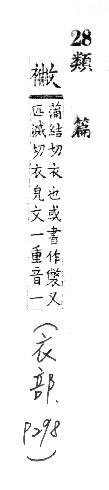 28 類篇
襒
蒲結切衣也或書作又
匹滅切衣皃文一重音一
(衣部.
P298)